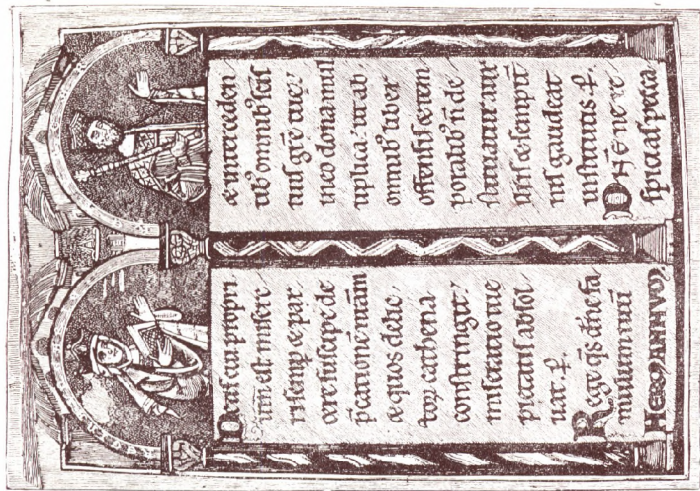 Deus cui propri
um est misere
ri semp & par
cere suscipe de
p̄cationē n̄ram
& quos delic
toꝝ cathena
constringit
miseratio tue
pietatis absol
uat. p.
Rege q̄s dn̄e fa
mulum tuū
& interceden
tib; omnib; sc̄is
tuis grē tue
in eo dona mul
tiplica. ut ab
omnib; liber
offensis & tem
poralib; n̄ de
stituatur aux
iliis & sempit
nis gaudeat
institutis. p.
ne re
spicias pecca